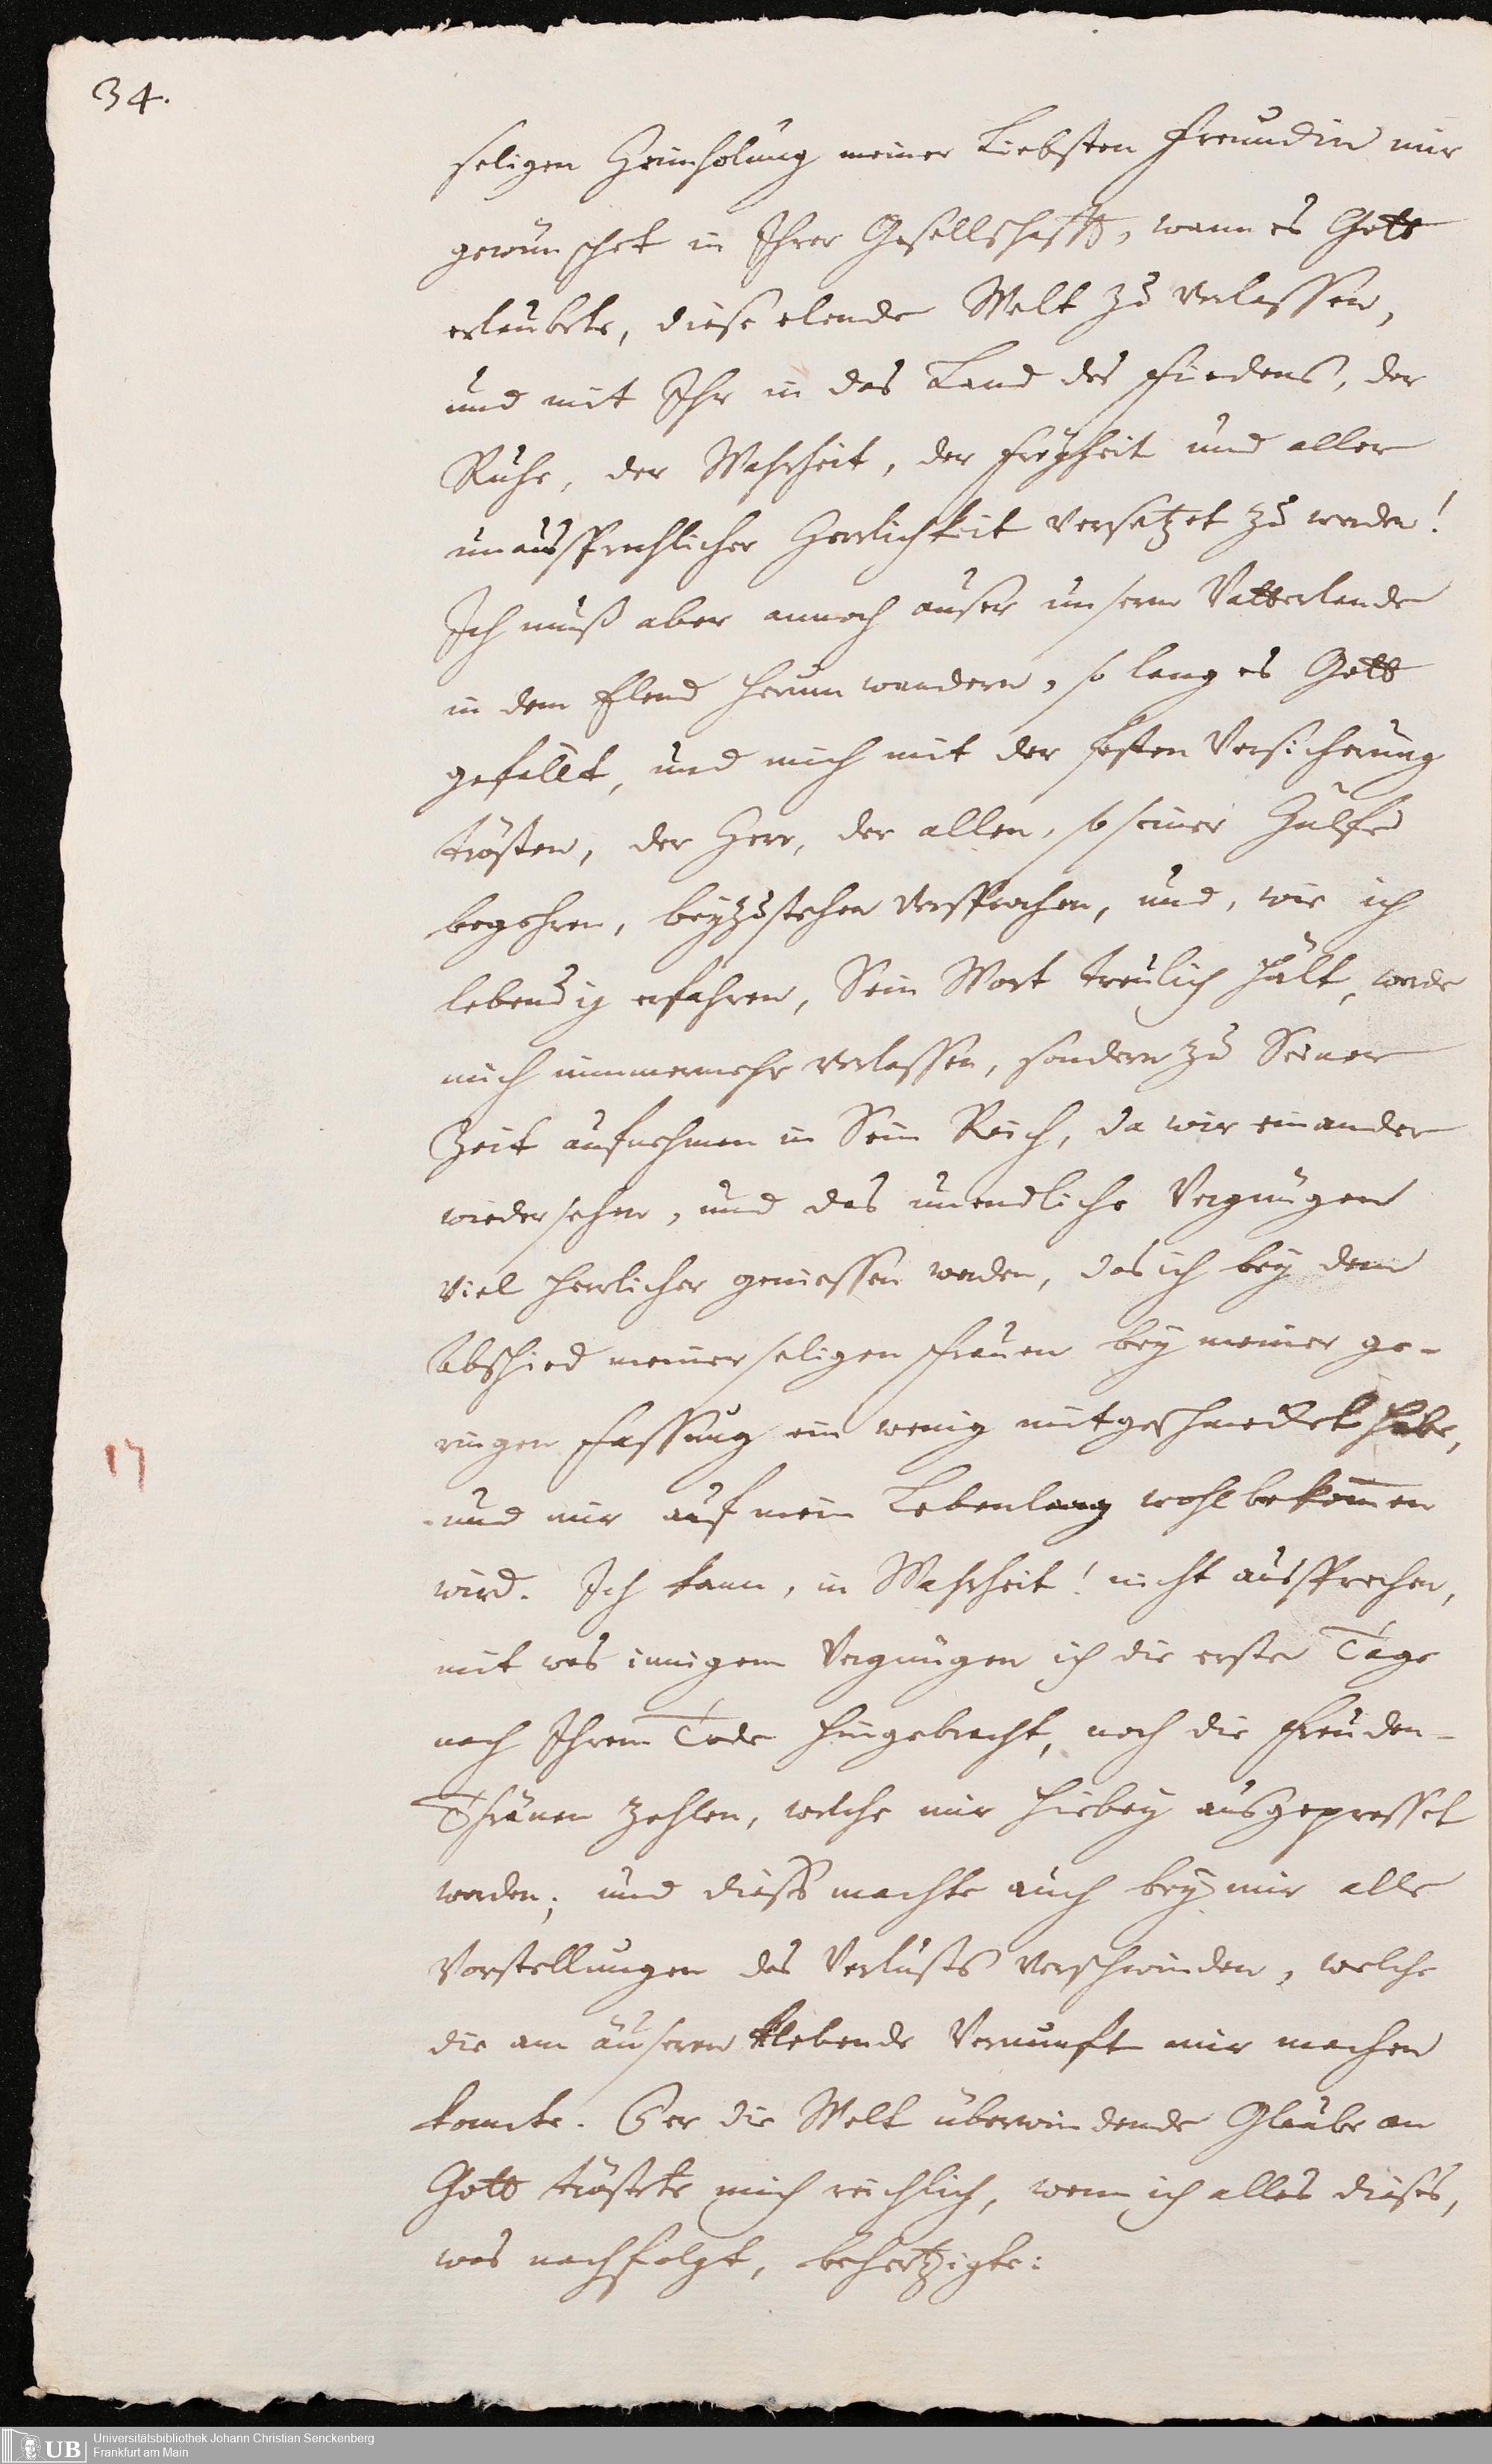 34.
seligen Heimholung meiner Liebsten Freundin mir
gewünschet in Ihrer Gesellschafft, wann es Gott
erlaubete, diese elende Welt zu verlassen,
und mit Ihr in das Land des Friedens, der
Ruhe, der Wahrheit, der Freyheit und aller
unaussprechlicher Herrlichkeit versetzet zu werden!
Ich muß aber annoch auser unserm Vatterlande
in dem Elend herum wandern, so lang es Gott
gefällt, und mich mit der festen Versicherung
trösten, der Herr, der allen, so seiner Hülfe
begehren, beyzustehen versprochen, und, wie ich
lebendig erfahren, Sein Wort treulich hält, werde
mich nimmermehr verlassen, sondern zu Seiner
Zeit aufnehmen in Sein Reich, da wir einander
wiedersehen, und das unendliche Vergnügen
viel herrlicher geniessen werden, das ich bey dem
Abschied meiner seligen Frauen bey meiner ge-
ringen Fassung ein wenig mitgeschmecket habe,
17
und mir auf mein Lebenlang wohl bekommen
wird. Ich kann, in Wahrheit! nicht aussprechen,
mit was innigem Vergnügen ich die erste Tage
nach Ihrem Tode hingebracht, noch die Freuden-
Thränen zehlen, welche mir hiebey ausgepresset
worden; und diess machte auch bey mir alle
Vorstellungen des Verlusts verschwinden, welche
die am äuseren klebende Vernunft mir machen
konnte. Der die Welt überwindende Glaube an
Gott tröstete mich reichlich, wenn ich alles dieses,
was nachfolgt, behertzigte:
UB
Universitätsbibliothek Johann Christian Senckenberg
Frankfurt am Main